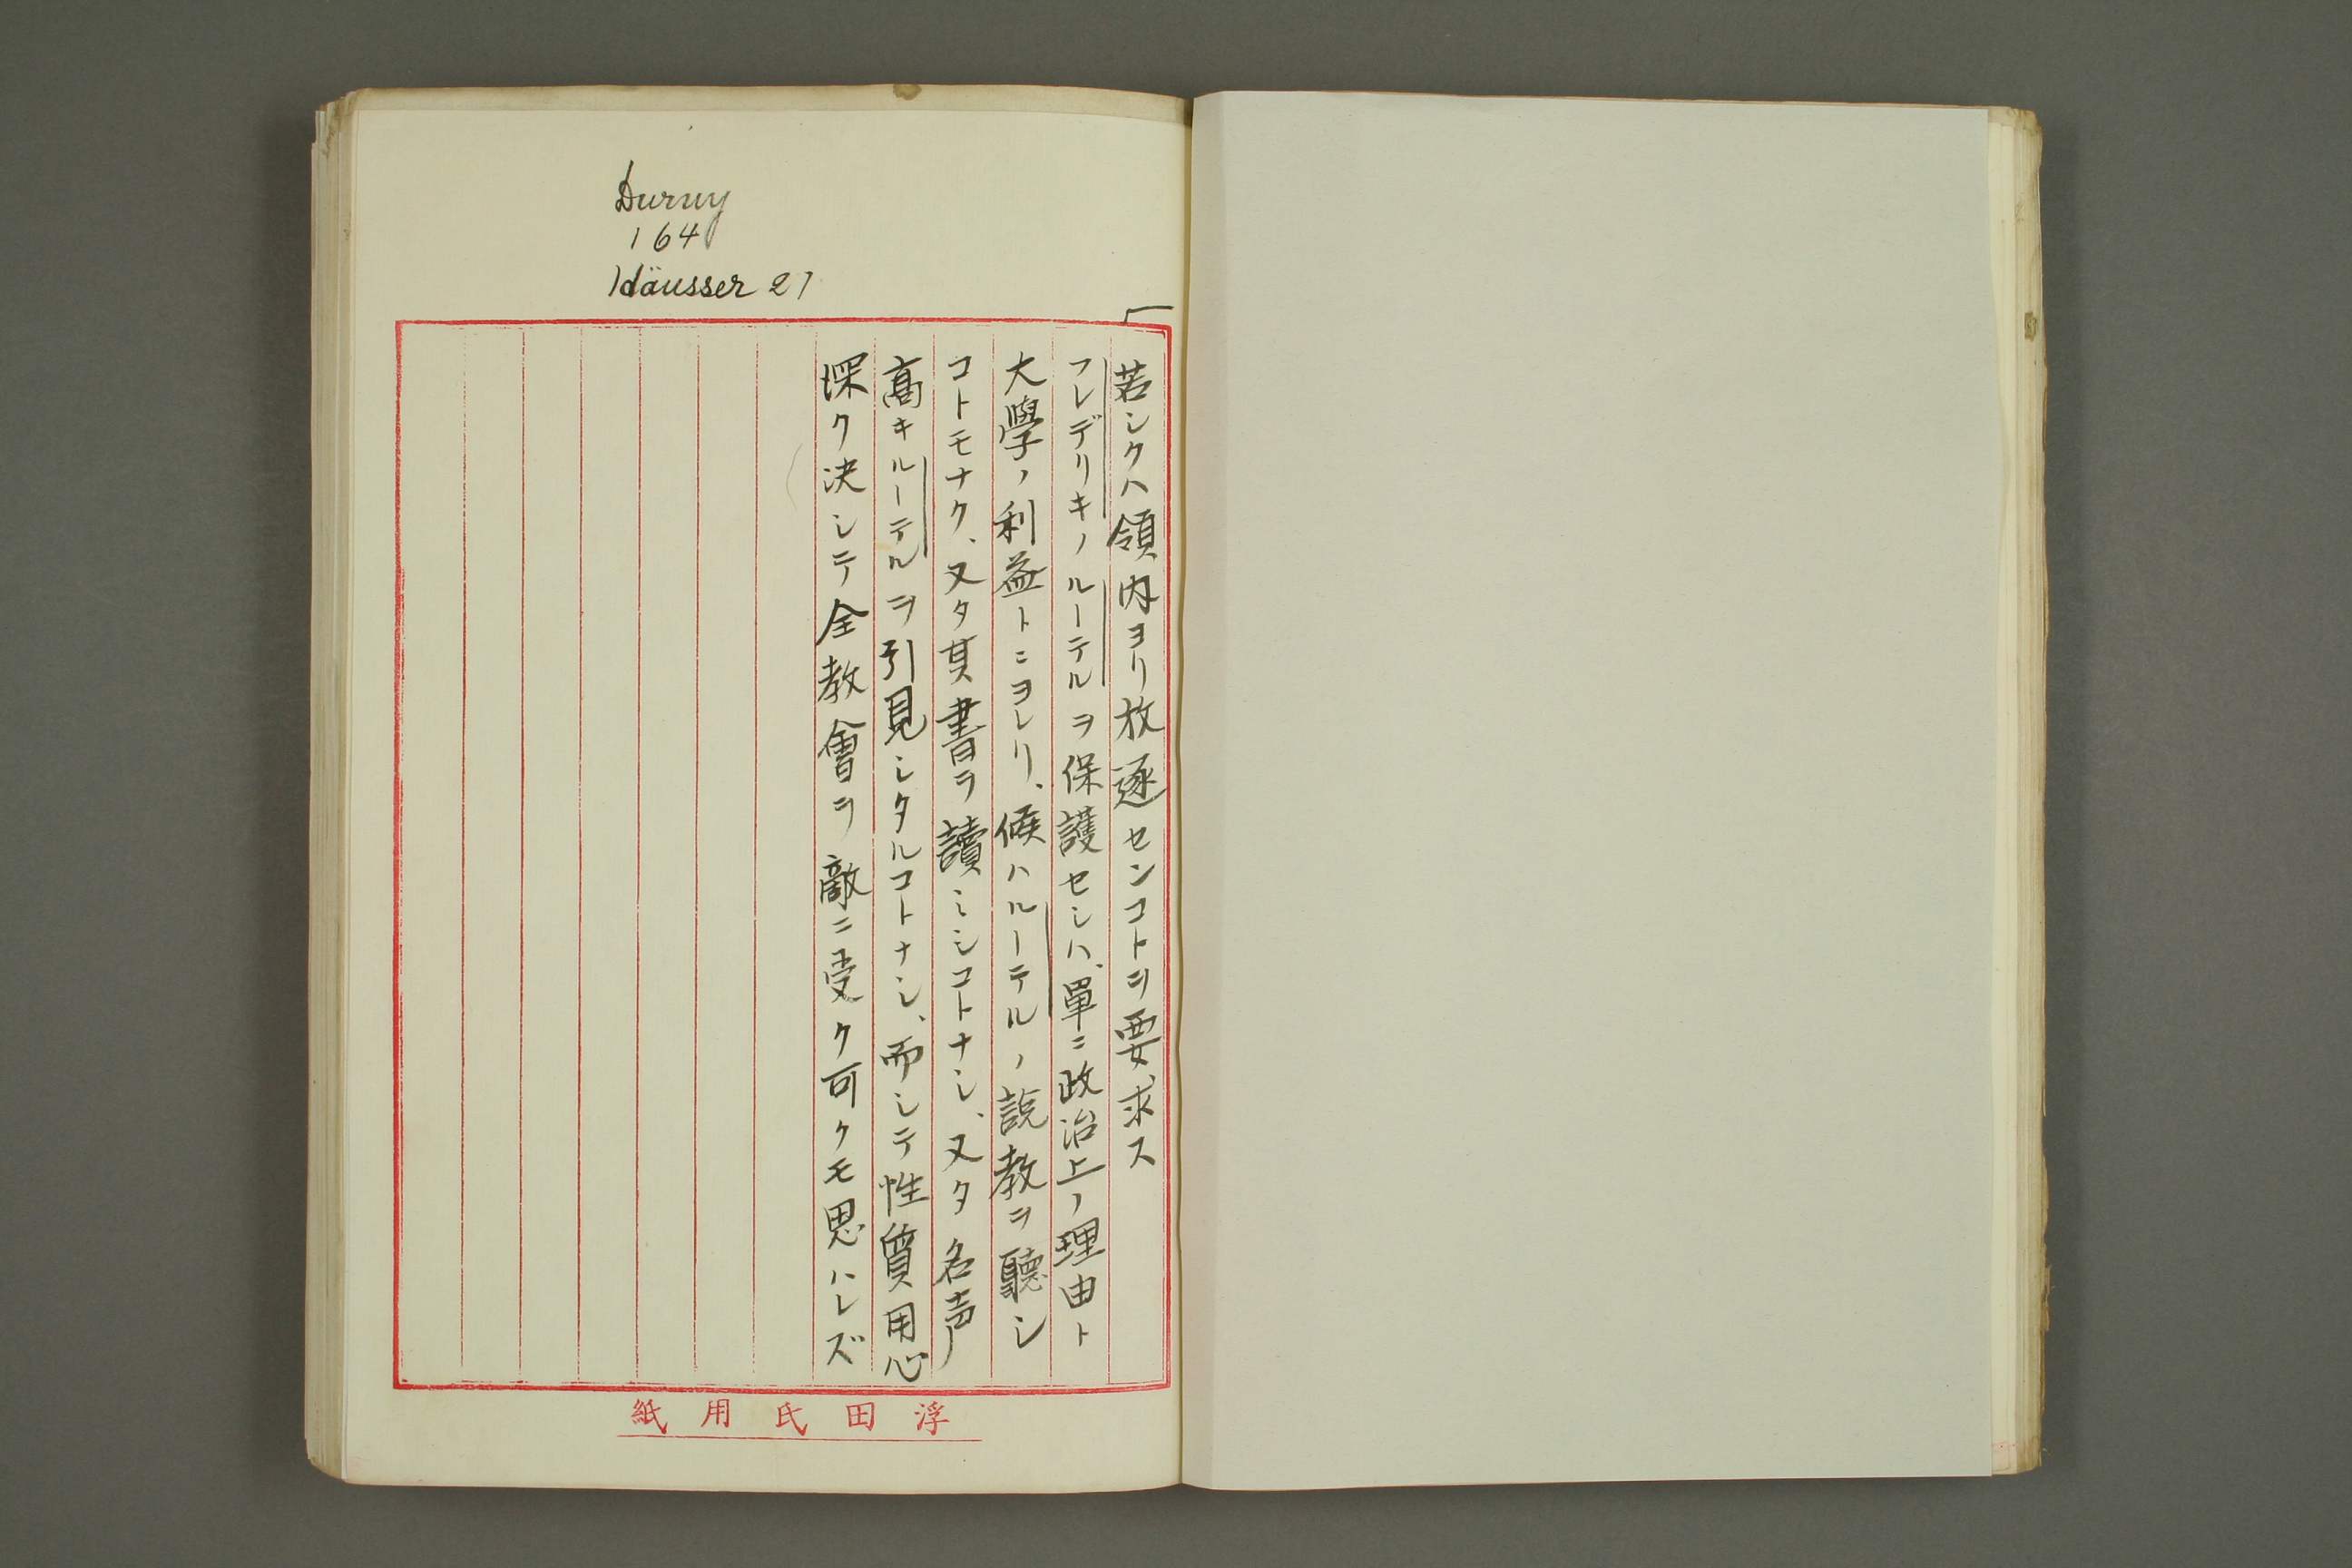 Duruy
164
Häusser 27
若シクハ領内ヨリ放逐センコトヲ要求ス
フレデリキノルーテルヲ保護セシハ、單ニ政治上ノ理由ト
大學ノ利益トニヨレリ、候ハルーテルノ説教ヲ聽シ
コトモナク、又タ其書ヲ讀ミシコトナシ、又タ名声
高キルーテルヲ引見シタルコトナシ、而シテ性質用心
深ク決シテ全教會ヲ敵ニ受ク可クモ思ハレズ
浮田氏用紙